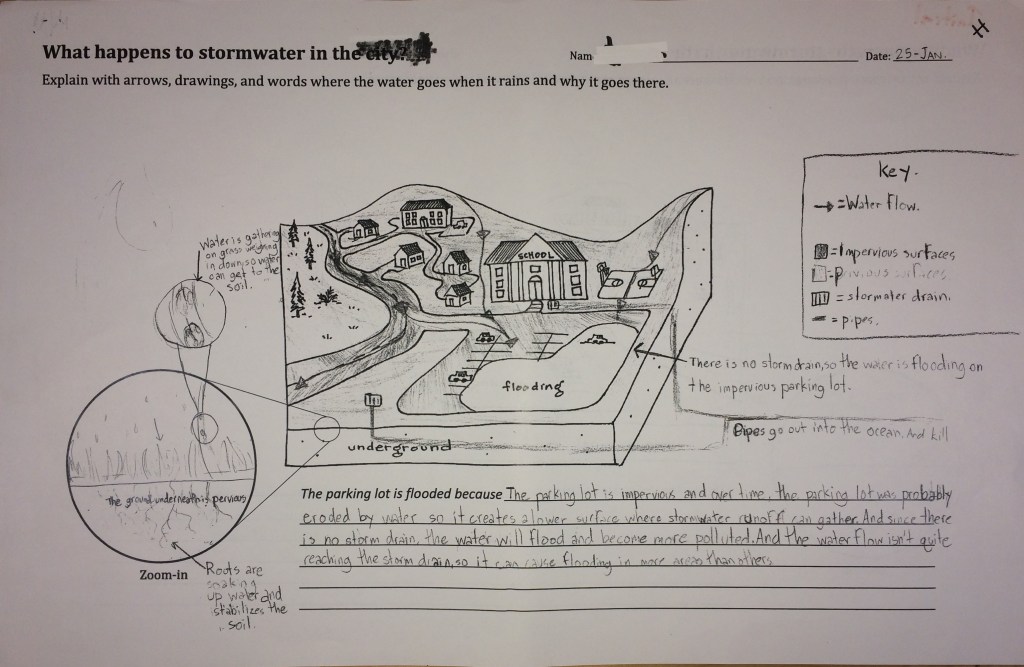 What happens to stormwater in the city?
Nam
Date: 25-JAN.
Explain with arrows, drawings, and words where the water goes when it rains and why it goes there.
Key.
=Water flow.
=Impervious surfaces
=privious surfaces
=stormwater drain.
=pipes.
Water is gathering
on grass weighing
in down, so water
can get to the
soil.
SCHOOL
flooding
There is no stormdrain, so the water is flooding on
the impervious parking lot.
Pipes go out into the ocean. And kill
underground
The ground underneath is pervious
Zoom-in
Roots are
soaking
up water and
stabilizes the
soil.
The parking lot is flooded because The parking lot is impervious and over time, the parking lot was probably
eroded by water so it creates a lower surface where stormwater runoff can gather. And since there
is no storm drain, the water will flood and become more polluted. And the water flow isn't quite
reaching the storm drain, so it can cause flooding in more areas than others.